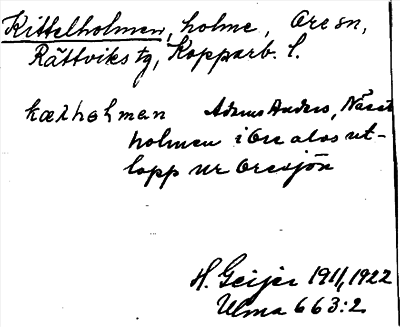 Kittelholmen, holme, Ore sn,
Rättviks tg, Kopparb. l.
Adams Anders,
holmen i Ore älvs ut-
lopp ur Oresjön
H. Geijer 1911, 1922
Ulma 663:2